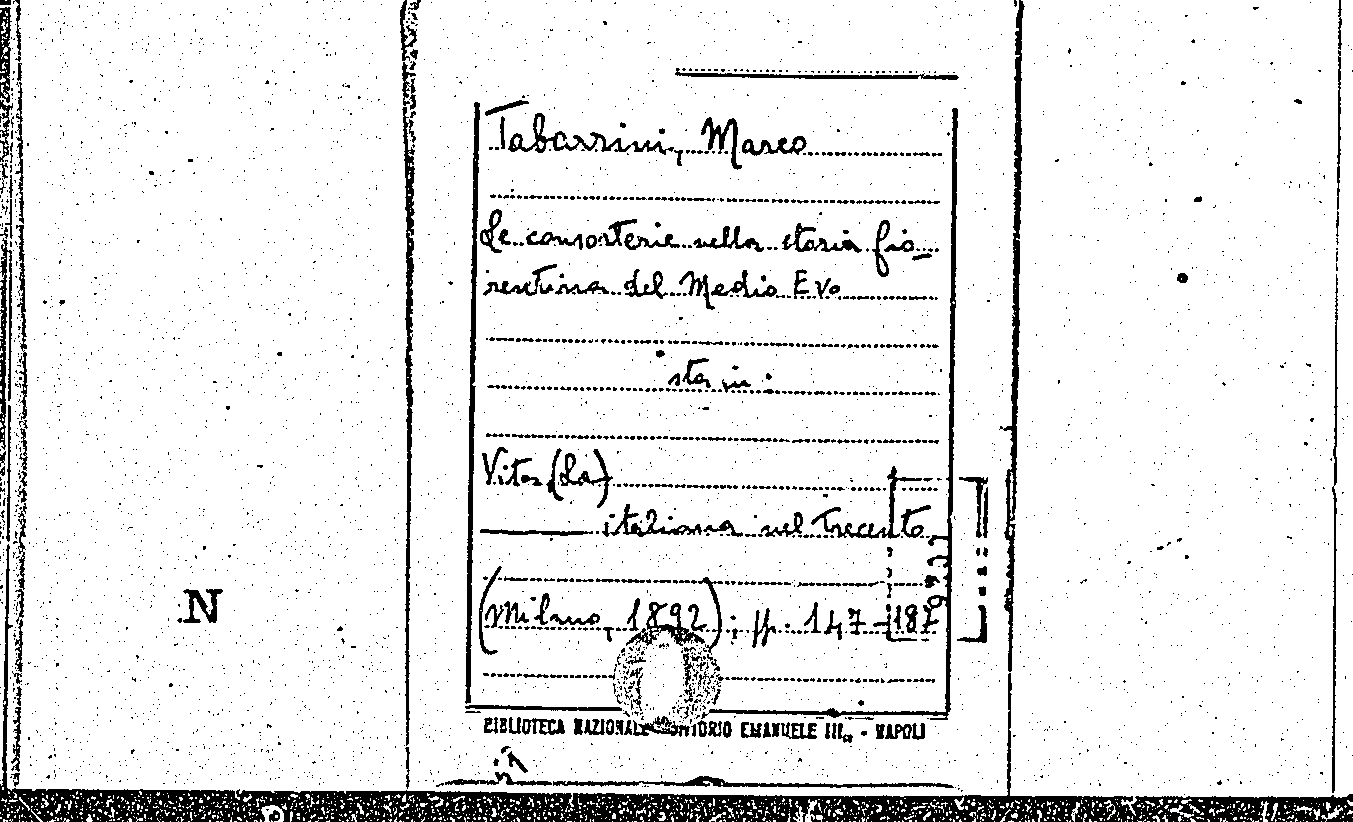 Tabarrini, Marco
Le consorterie nella storia fio-
rentina del Medio Evo
sta in:
Vita (La)
italiana nel Trecento
(Milano, 1892); pp. 147-187
N
BIBLIOTECA NAZIONALE VITTORIO EMANUELE III - NAPOLI